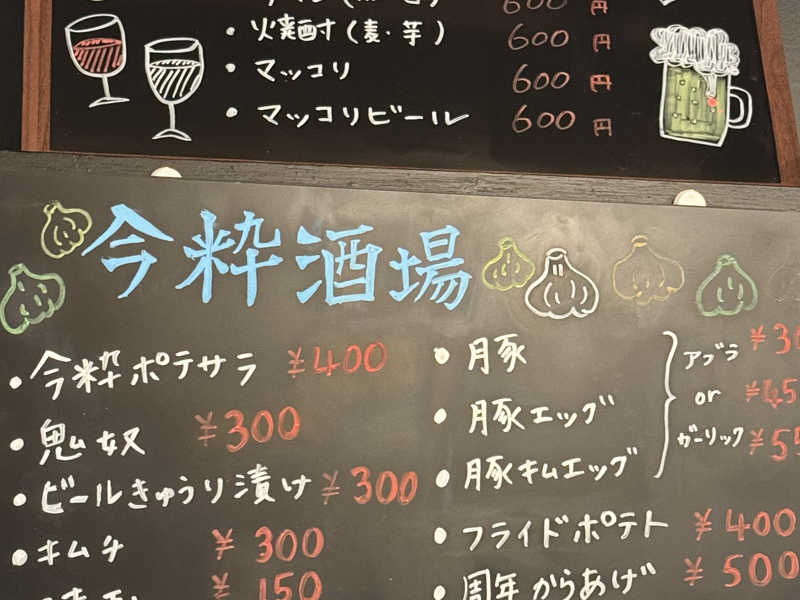 600円
・焼酎(麦・芋) 600円
・マッコリ 600円
・マッコリビール 600円
今粋酒場
・今粋ポテサラ ¥400
・鬼奴 ¥300
・ビールきゅうり漬け ¥300
・キムチ ¥300
¥150
・豚
・豚エッグ
・豚キムエッグ
アブラ
or
ガーリック
・フライドポテト ¥400
・周年からあげ ¥500